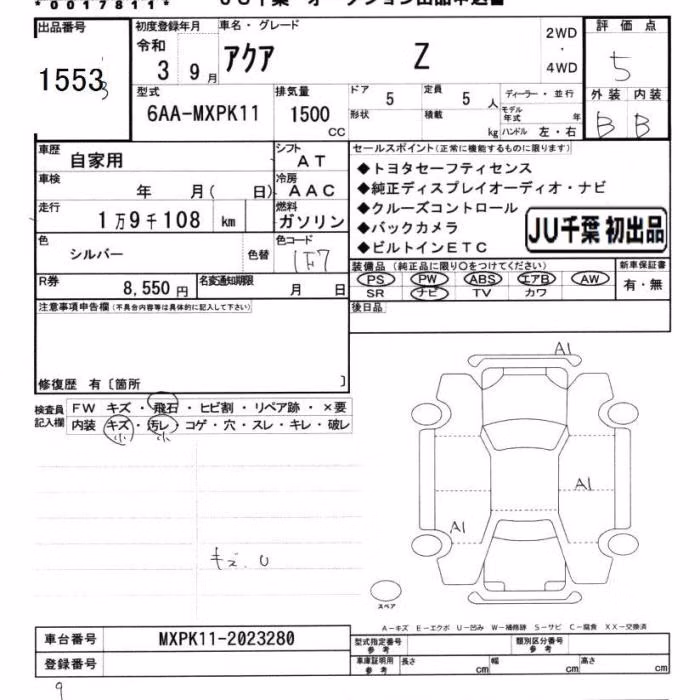 *0017811*
JU千葉 オークション出品申込書
出品番号
15533
初度登録年月
令和
3 9月
車名・グレード
アクア Z
2WD
・
4WD
評価点
5
外装 内装
B B
型式
6AA-MXPK11
排気量
1500
CC
ドア
5
形状
定員
5 人
積載
kg
ディーラー・並行
モデル年式 年
ハンドル 左・右
車歴
自家用
シフト
AT
車検
年 月( 日)
冷房
AAC
走行
1万9千108 km
燃料
ガソリン
色
シルバー
色替
色コード
1F7
R券
8,550円
名変通知期限
月 日
セールスポイント(正常に機能するものに限ります)
◆トヨタセーフティセンス
◆純正ディスプレイオーディオ・ナビ
◆クルーズコントロール
◆バックカメラ
◆ビルトインETC
JU千葉 初出品
装備品(純正品に限り○をつけてください)
PS PW ABS エアB AW
SR ナビ TV カワ
新車保証書
有・無
後日品
注意事項申告欄(不具合内容等は具体的に記入して下さい)
修復歴 有〔箇所 〕
検査員記入欄
FW キズ・飛石・ヒビ割・リペア跡・×要
内装 キズ・汚レ・コゲ・穴・スレ・キレ・破レ
小 小
キズ.U
A1
A1
A1
スペア
A-キズ E-エクボ U-凹み W-補修跡 S-サビ C-腐食 XX-交換済
車台番号
MXPK11-2023280
登録番号
型式指定番号
参考
類別区分番号
参考
車庫証明用
参考
長さ cm 幅 cm 高さ cm
9